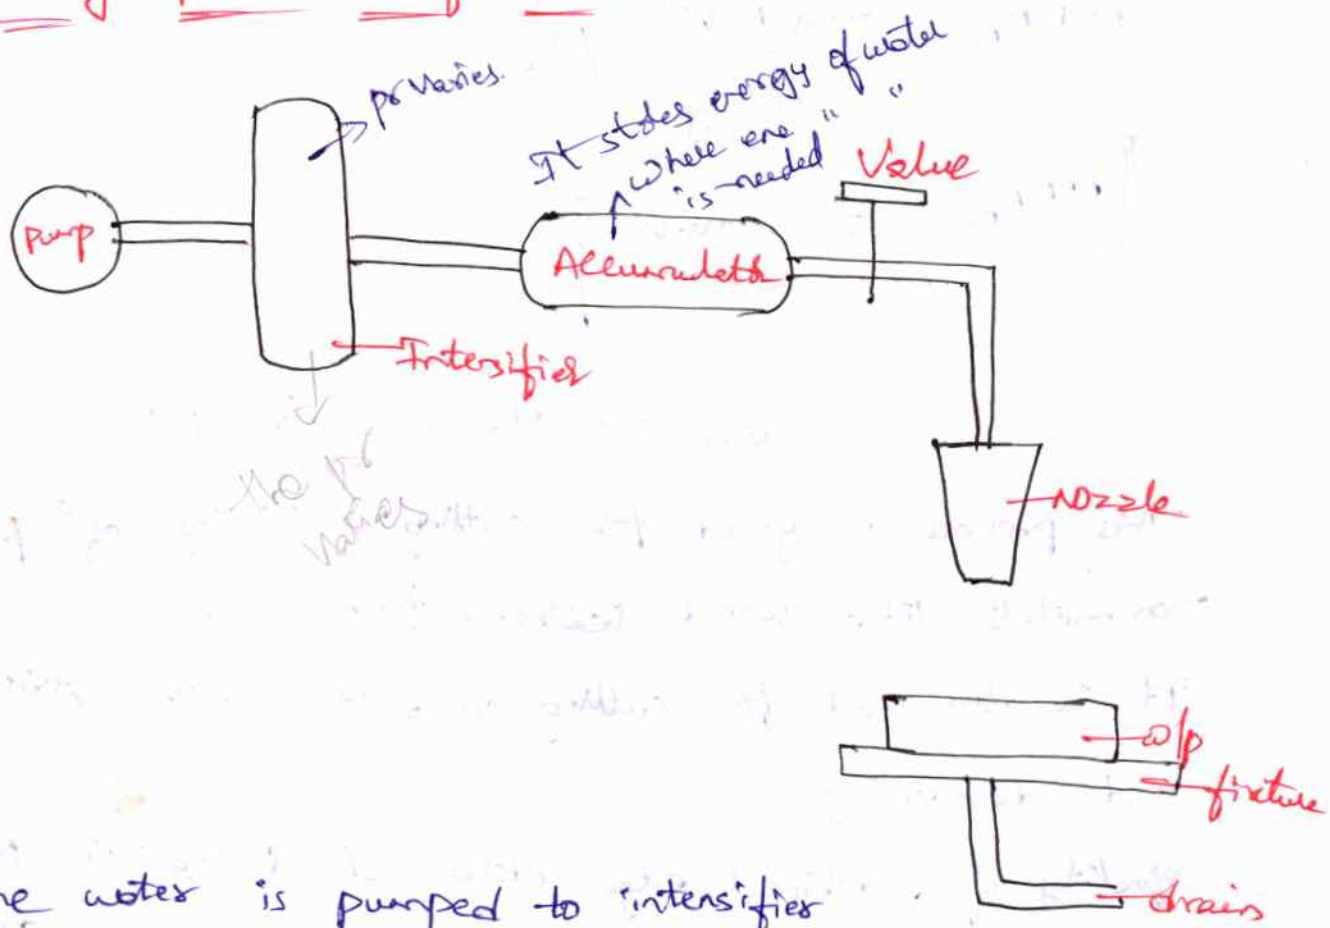 pr varies.
It stores energy of water
where ene " "
is needed
Value
pump
Accumulator
Intensifier
the pr
varies
Nozzle
w/p
fixture
drain
water is pumped to intensifier